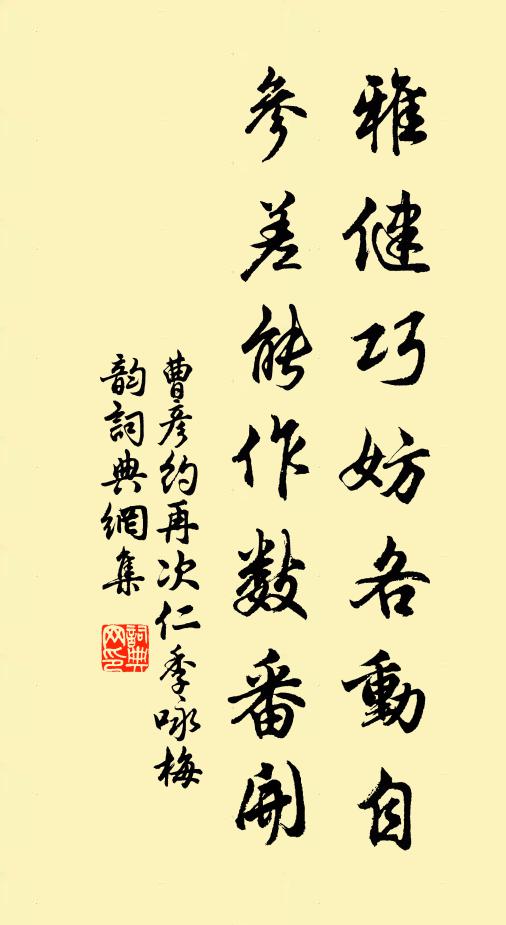 雅健巧妨各動自
參差能作數番開
曹彥約再次仁季咏梅
韵詞典網集
詞典網印